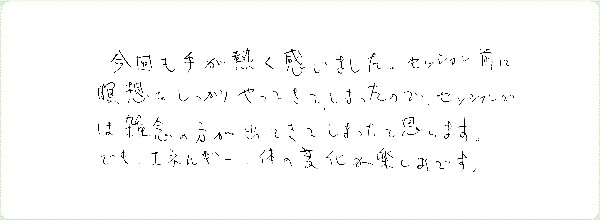 今回も手が熱く感じました。セッション前に
瞑想をしっかりやってきてしまったので、セッションで
は雑念の方が出てきてしまったと思います。
でも、エネルギー、体の変化が楽しみです。